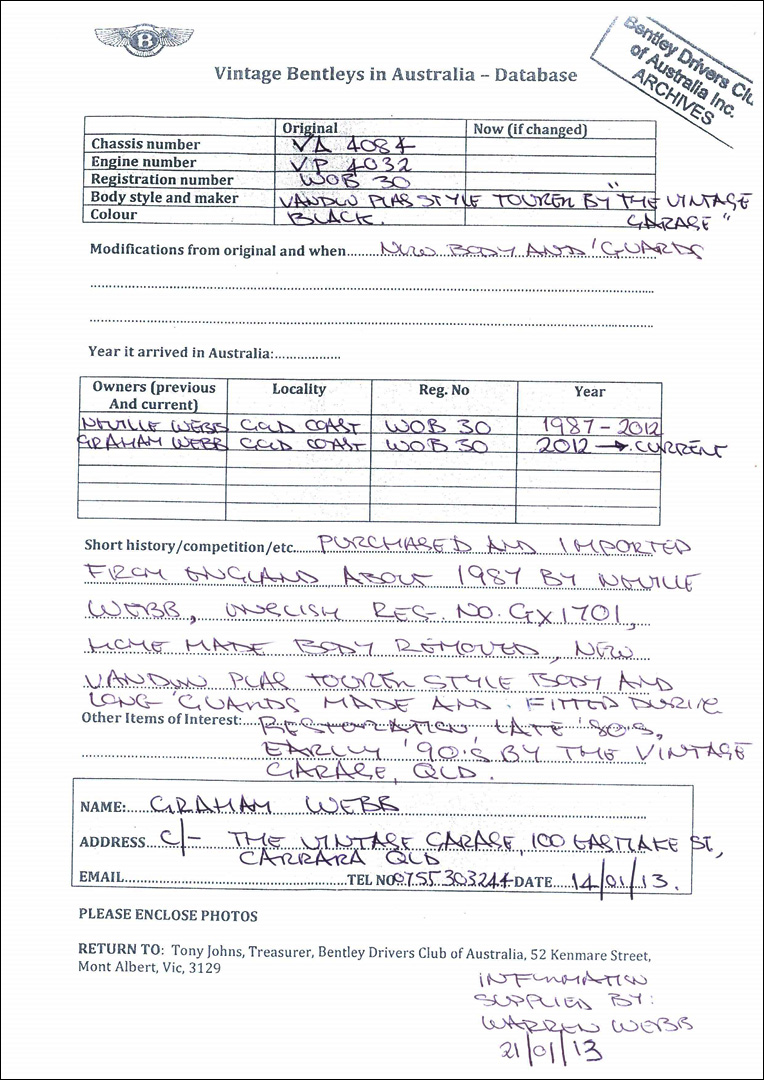 B
Bentley Drivers Clu
of Australia Inc.
ARCHIVES
Vintage Bentleys in Australia – Database
Original Now (if changed)
Chassis number VA 4084
Engine number VP 4032
Registration number WOB 30
Body style and maker VANDEN PLAS STYLE TOURER BY "THE VINTAGE
Colour BLACK. GARAGE"
Modifications from original and when......NEW BODY AND 'GUARDS
Year it arrived in Australia:..................
Owners (previous And current) Locality Reg. No Year
NEVILLE WEBB GOLD COAST WOB 30 1987 – 2012
GRAHAM WEBB GOLD COAST WOB 30 2012 → CURRENT
Short history/competition/etc.....PURCHASED AND IMPORTED
FROM ENGLAND ABOUT 1987 BY NEVILLE
WEBB, ENGLISH REG. NO. GX1701,
HOME MADE BODY REMOVED, NEW
VANDEN PLAS TOURER STYLE BODY AND
LONG 'GUARDS MADE AND FITTED DURING
Other Items of Interest: RESTORATION, LATE '80'S,
EARLY '90'S BY THE VINTAGE
GARAGE, QLD.
NAME: GRAHAM WEBB
ADDRESS C/- THE VINTAGE GARAGE, 100 EASTLAKE ST,
CARRARA QLD
EMAIL..........TEL NO 0755 303244 DATE 14/01/13.
PLEASE ENCLOSE PHOTOS
RETURN TO: Tony Johns, Treasurer, Bentley Drivers Club of Australia, 52 Kenmare Street,
Mont Albert, Vic, 3129
INFORMATION
SUPPLIED BY:
WARREN WEBB
21/01/13